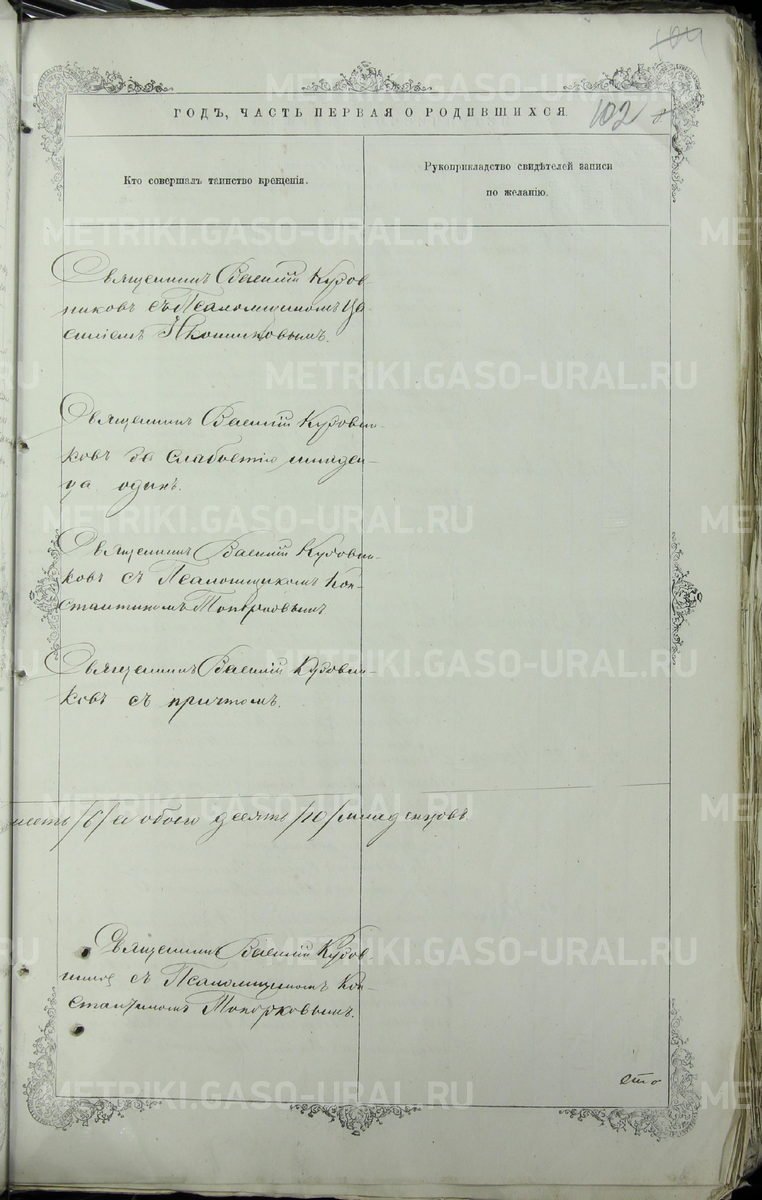 102
ГОДЪ, ЧАСТЬ ПЕРВАЯ О РОДИВШИХСЯ
Кто совершалъ таинство крещенія.
Рукоприкладство свидѣтелей записи
по желанію.
Священникъ Василій Куров-
никовъ съ Псаломщикомъ
Иконниковымъ.
Священникъ Василій Куровни-
ковъ за слабостію младен-
ца одинъ.
Священникъ Василій Куровни-
ковъ съ Псаломщикомъ Кон-
стантиномъ Топорковымъ
Священникъ Василій Куровни-
ковъ съ причтомъ.
/6/ а обоего десять /10/ младенцовъ
Священникъ Василій Куров-
съ Псаломщикомъ Кон-
стантиномъ Топорковымъ.
сто
METRIKI.GASO-URAL.RU